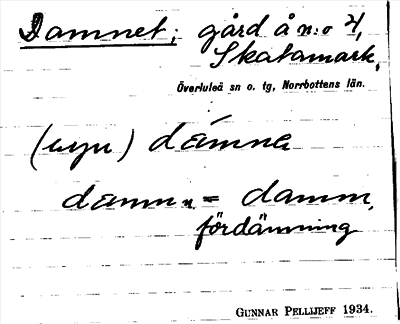 Damnet; gård å n:o 4,
Skatamark,
Överluleå sn o. tg, Norrbottens län.
(uyn) dámna
damn n = damm,
fördämning
GUNNAR PELLIJEFF 1934.